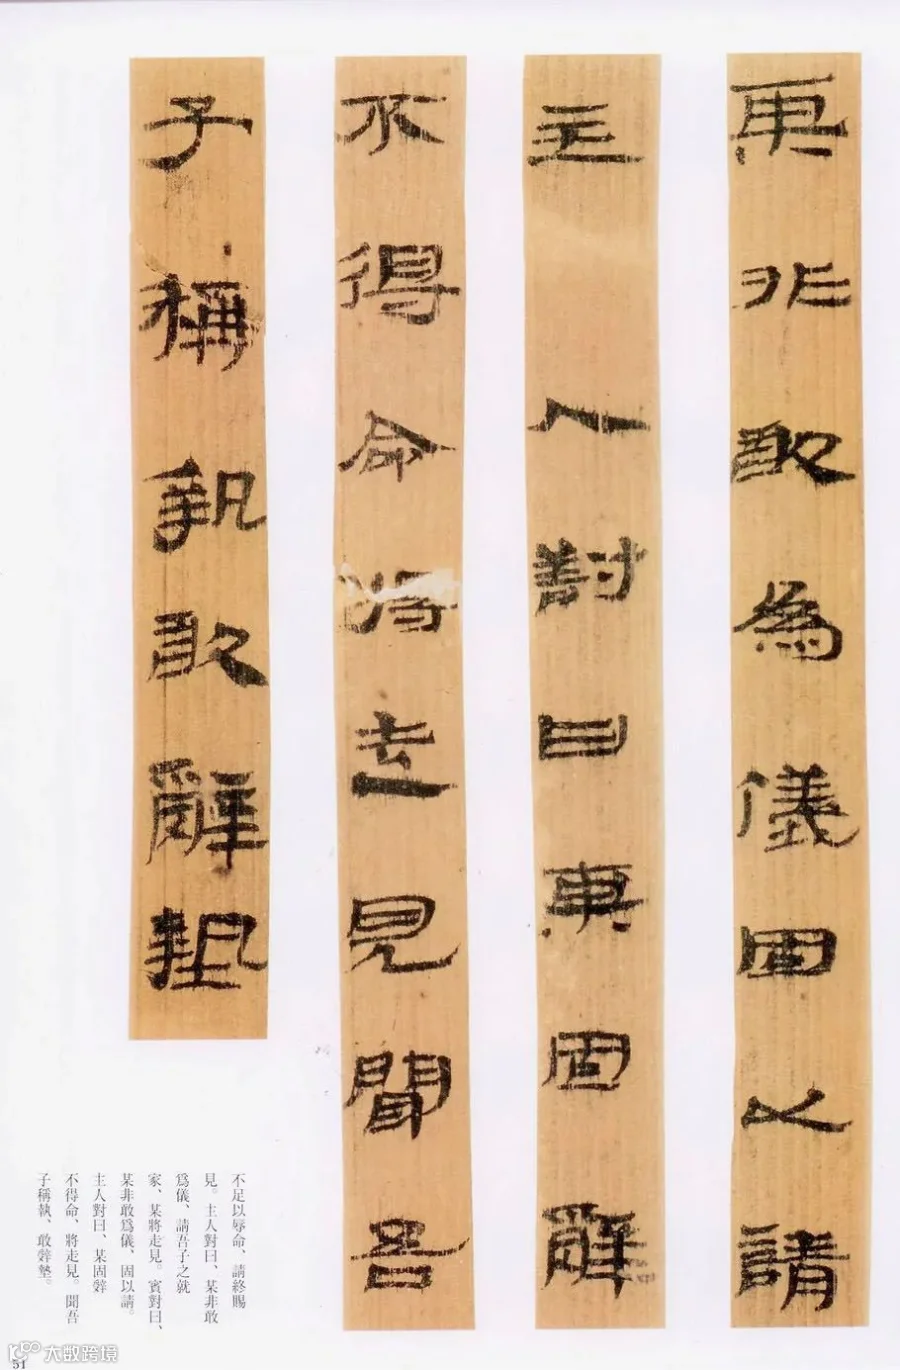 某非敢為儀固以請
主人對曰某固辤
不得命將走見聞吾
子稱執敢辤墊
不足以辱命、請終賜
見。主人對曰、某非敢
爲儀、請吾子之就
家、某將走見。賓對曰、
某非敢爲儀、固以請。
主人對曰、某固辤
不得命、將走見。聞吾
子稱執、敢辤墊。
51
大数跨境